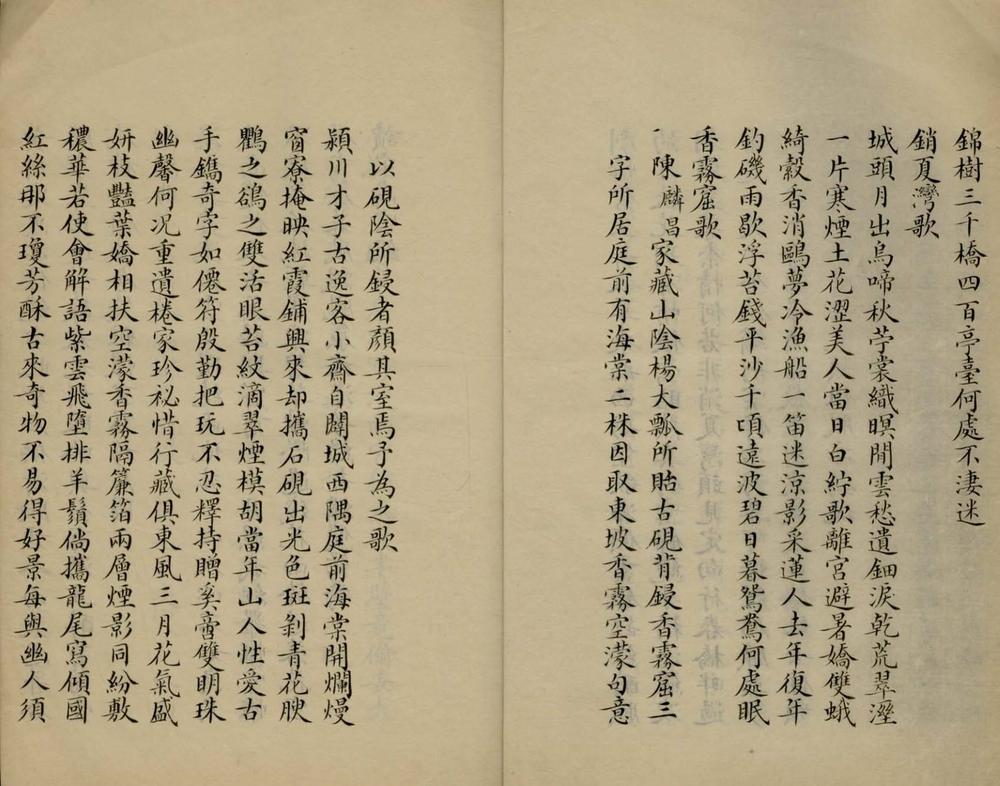 錦樹三千橋四百亭臺何處不淒迷
銷夏灣歌
城頭月出烏啼秋苧裳織暝閒雲愁遺鈿淚乾荒翠溼
一片寒煙土花澀美人當日白紵歌離宮避暑嬌雙蛾
綺縠香消鷗夢冷漁船一笛迷涼影采蓮人去年復年
釣磯雨歇浮苔錢平沙千頃遠波碧日暮鴛鴦何處眠
香霧窟歌
陳麟昌家藏山陰楊大瓢所貽古硯背鋟香霧窟三
字所居庭前有海棠二株因取東坡香霧空濛句意
以硯陰所鋟者顏其室焉予為之歌
潁川才子古逸客小齋自闢城西隅庭前海棠開爛熳
窗寮掩映紅霞鋪興來却攜石硯出光色斑剝青花腴
鸜之鵒之雙活眼苔紋滴翠煙模胡當年山人性愛古
手鐫奇字如僊符殷勤把玩不忍釋持贈奚啻雙明珠
幽馨何況重遺棬家珍祕惜行藏俱東風三月花氣盛
妍枝豔葉嬌相扶空濛香霧隔簾箔兩層煙影同紛敷
穠華若使會解語紫雲飛墮排羊鬚倘攜龍尾寫傾國
紅絲那不瓊芳酥古來奇物不易得好景每與幽人須